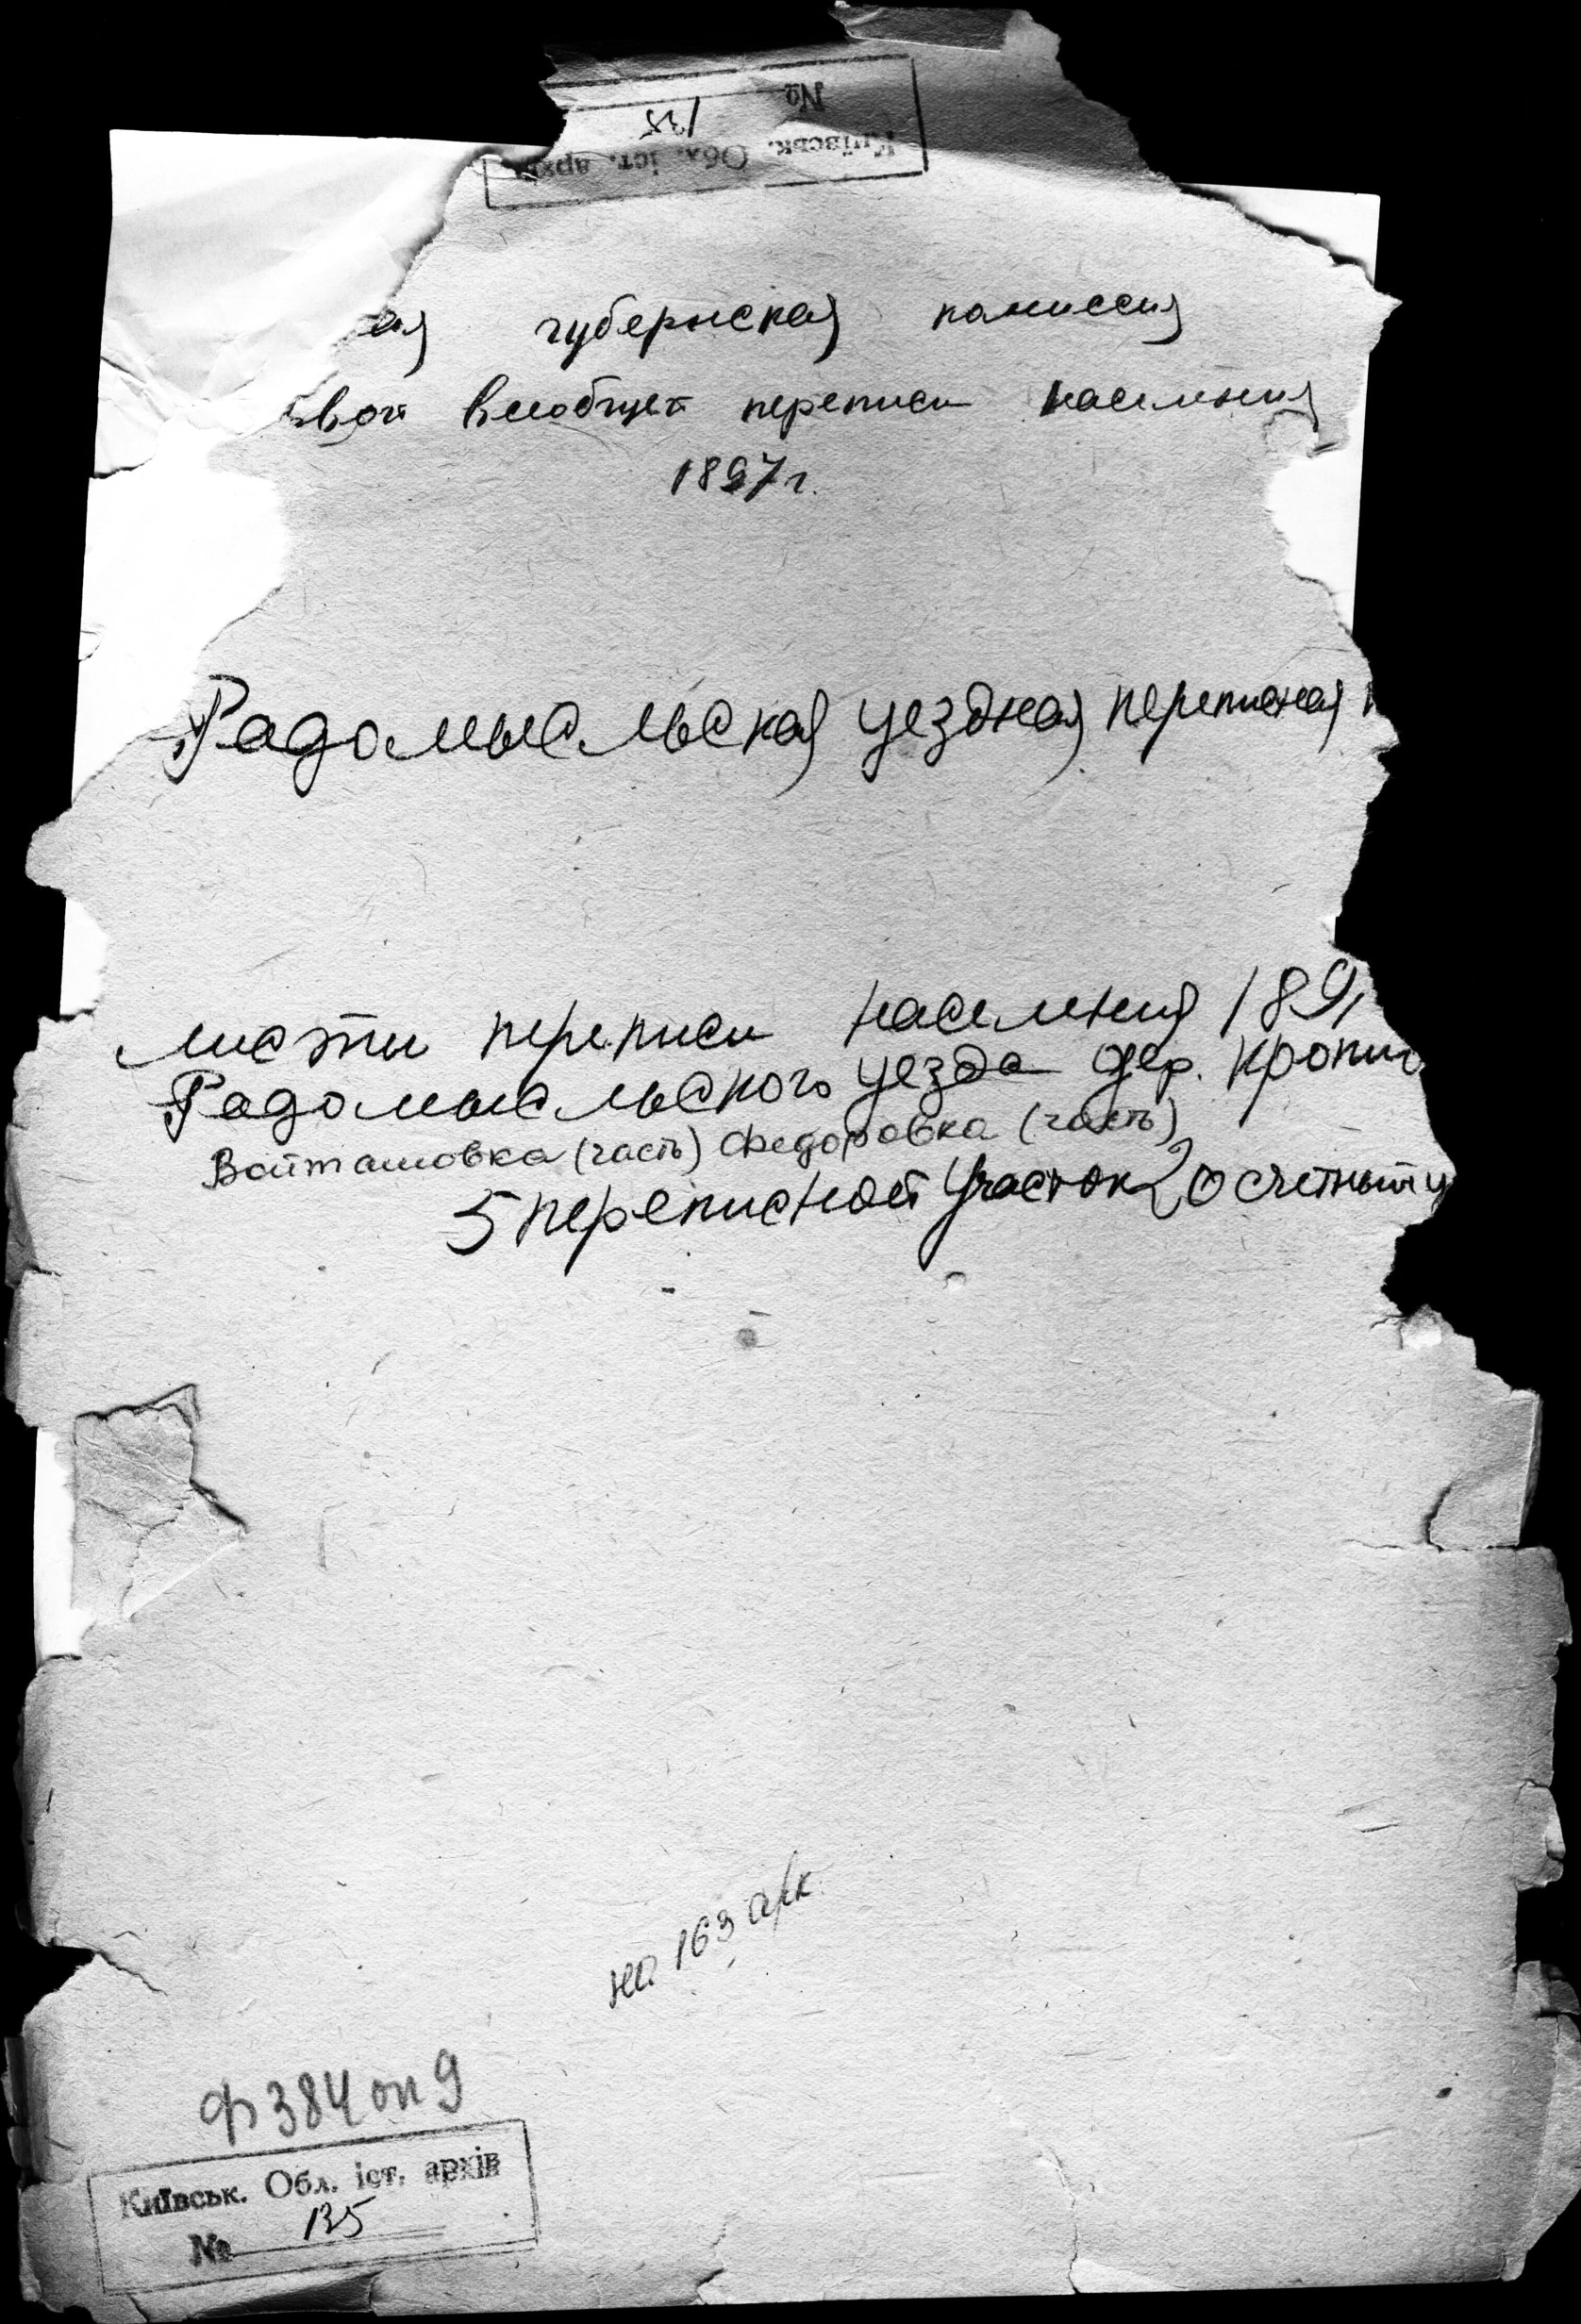 №
135
Київськ. Обл. іст. архів
ая губернская комиссия
вой всеобщей переписи населения
1897 г.
Радомысльская уездная переписная
листы переписи населения 189
Радомысльского уезда дер. Кропив
Войташовка (часть) Федоровка (часть)
5 переписной участок 20 счетный у
на 163 арк.
Ф 384 оп 9
Київськ. Обл. іст. архів
№ 135